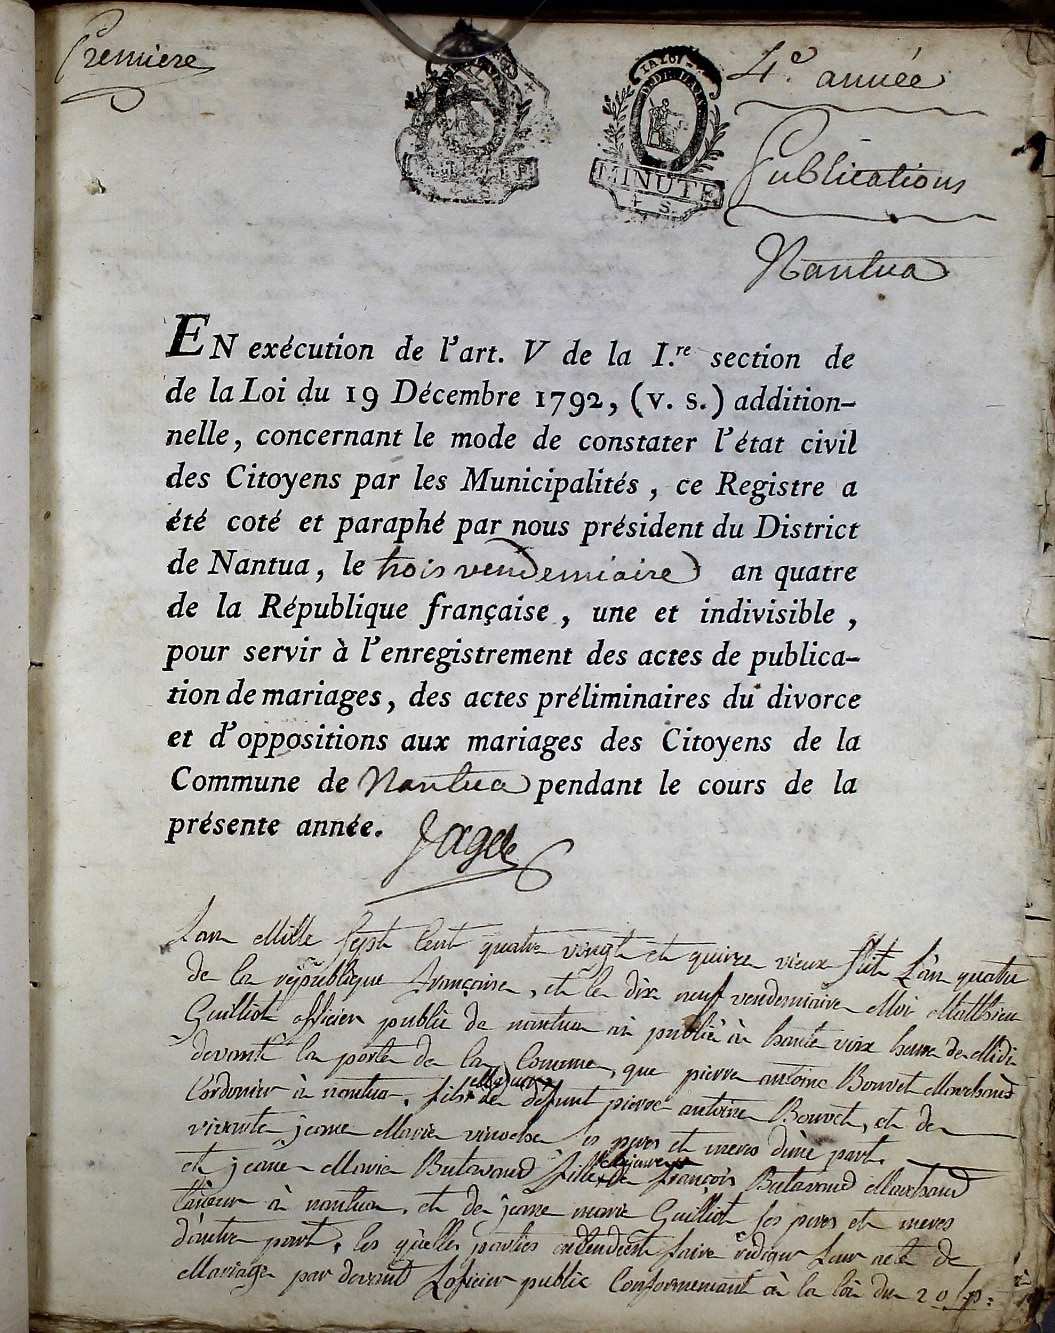 Premiere
4.e année
Publications
Nantua
LA LOI
MINUTE
S.
EN exécution de l'art. V de la I.re section de
de la Loi du 19 Décembre 1792, (v. s.) addition-
nelle, concernant le mode de constater l'état civil
des Citoyens par les Municipalités, ce Registre a
été coté et paraphé par nous président du District
de Nantua, le trois vendemiaire an quatre
de la République française, une et indivisible,
pour servir à l'enregistrement des actes de publica-
tion de mariages, des actes préliminaires du divorce
et d'oppositions aux mariages des Citoyens de la
Commune de Nantua pendant le cours de la
présente année.
Lan Mille sept Cent quatre vingt et quinze vieux stile Lan quatre
de la république francaise, et le dix neuf vendemiaire Moi Matthieu
Guilliot officier public de nantua ai publié à haute voix heure de Midi
devant la porte de la Commune, que pierre antoine Bouvet Marchand
Cordonier à nantua, fils Majeur de défunt pierre antoine Bouvet, et de
vivante jeanne Marie ses peres et meres d'une part.
et jeanne Marie Butavand fille Majeure de françois Butavand Marchand
à nantua, et de jeanne marie Guilliot ses peres et meres
d'autre part, les quelles parties entendent faire rediger Leur acte de
Mariage par devant Loficier public Conformement à la loi du 20